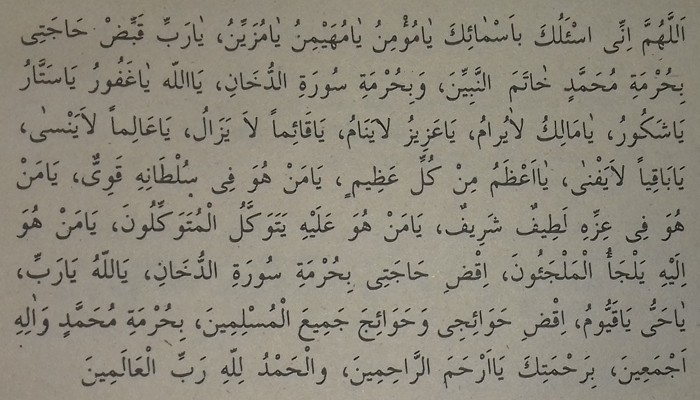 اَللَّهُمَّ اِنِّى اسْئَلُكَ بِاَسْمٰائِكَ يٰامُؤْمِنُ يٰامُهَيْمِنُ يٰامُزَيِّنُ، يٰارَبِّ قَبِّضْ حَاجَتِى
بِحُرْمَةِ مُحَمَّدٍ خٰاتَمَ النَّبِيِّنَ، وَبِحُرْمَةِ سُورَةِ الدُّخَانِ، يَااللّه يٰاغَفُورُ يَاسَتَّارُ
يَاشَكُورُ، يٰامَالِكُ لاٰيُرامُ، يَاعَزِيزُ لاٰيَنَامُ، يَاقَائِماً لاَ يَزَالُ، يَاعَالِماً لاَيَنْسىٰ،
يَابَاقِياً لاَيَفْنىٰ، يٰااَعْظَمُ مِنْ كُلِّ عَظِيمٍ، يٰامَنْ هُوَ فِى سُلْطَانِهِ قَوِىٌّ، يَامَنْ
هُوَ فِى عِزِّهِ لَطِيفٌ شَرِيفٌ، يَامَنْ هُوَ عَلَيْهِ يَتَوَكَّلُ الْمُتَوَكِّلُونَ، يَامَنْ هُوَ
اِلَيْهِ يَلْجَأُ الْمَلْجَئُونَ، اِقْضِ حَاجَتِى بِحُرْمَةِ سُورَةِ الدُّخَانِ، يَاللّهُ يَارَبِّ،
يٰاحَىُّ يَاقَيُّومُ، اِقْضِ حَوَائِجِى وَحَوَائِجَ جَمِيعَ الْمُسْلِمِينَ، بِحُرْمَةِ مُحَمَّدٍ وَاٰلِهِ
اَجْمَعِينَ، بِرَحْمَتِكَ يَااَرْحَمَ الرَّاحِمِينَ، والْحَمْدُ لِلّهِ رَبِّ الْعَالَمِينَ